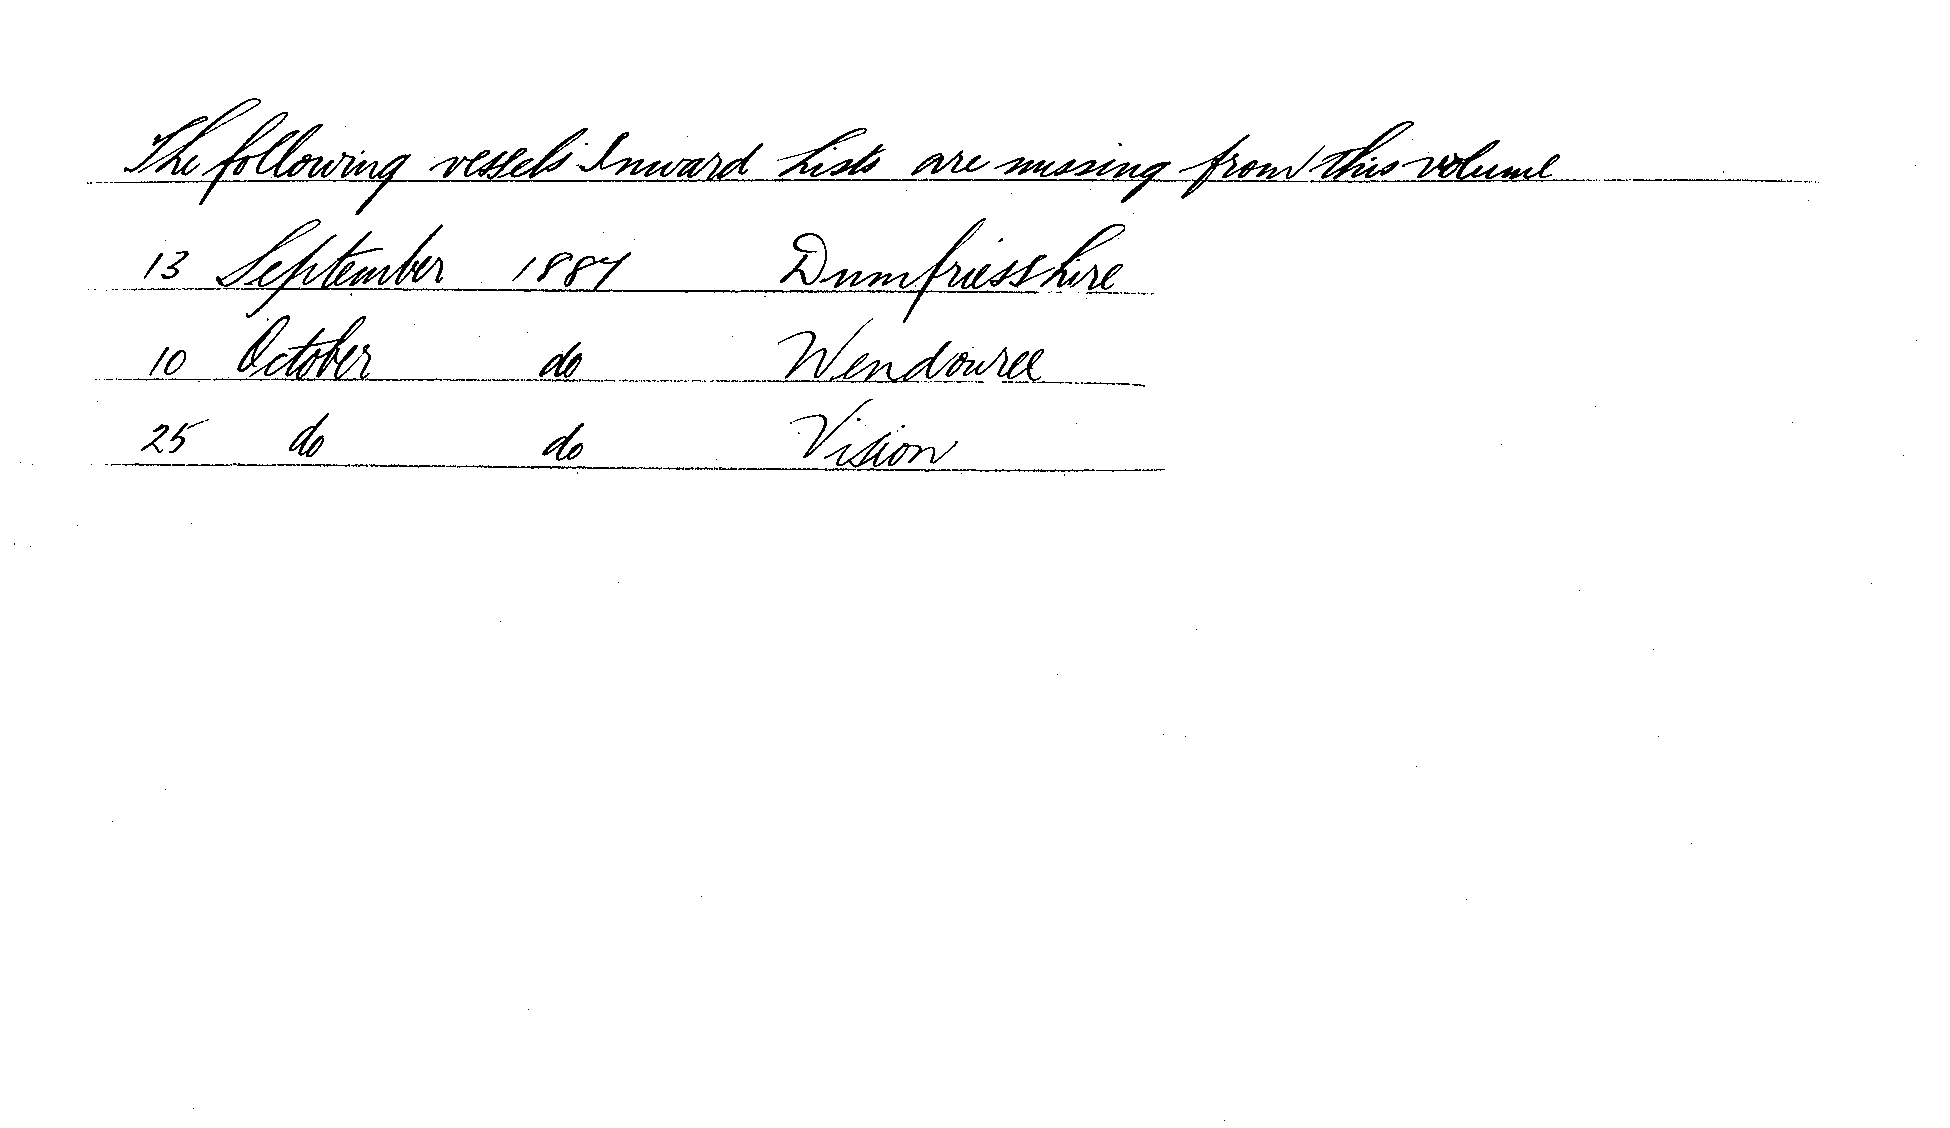 The following vessels Inward Lists are missing from this volume
13 September 1887 Dumfriesshire
10 October do Wendouree
25 do do Vision